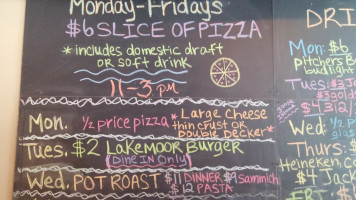 Monday-Fridays
$6 SLICE OF PIZZA
*includes domestic draft
OR soft drink
11-3 PM
Mon. ½ price pizza *Large Cheese
thin crust or
Double Decker*
Tues. $2 Lakemoor Burger
(Dine In Only)
Wed. POT ROAST $11 DINNER $9 Sammich
$12 PASTA
DRI
Mon: $6
pitchers B
budlight
Tues: $3
$4 312
Wed: ½
Thurs:
Heineken, C
$4 Jack